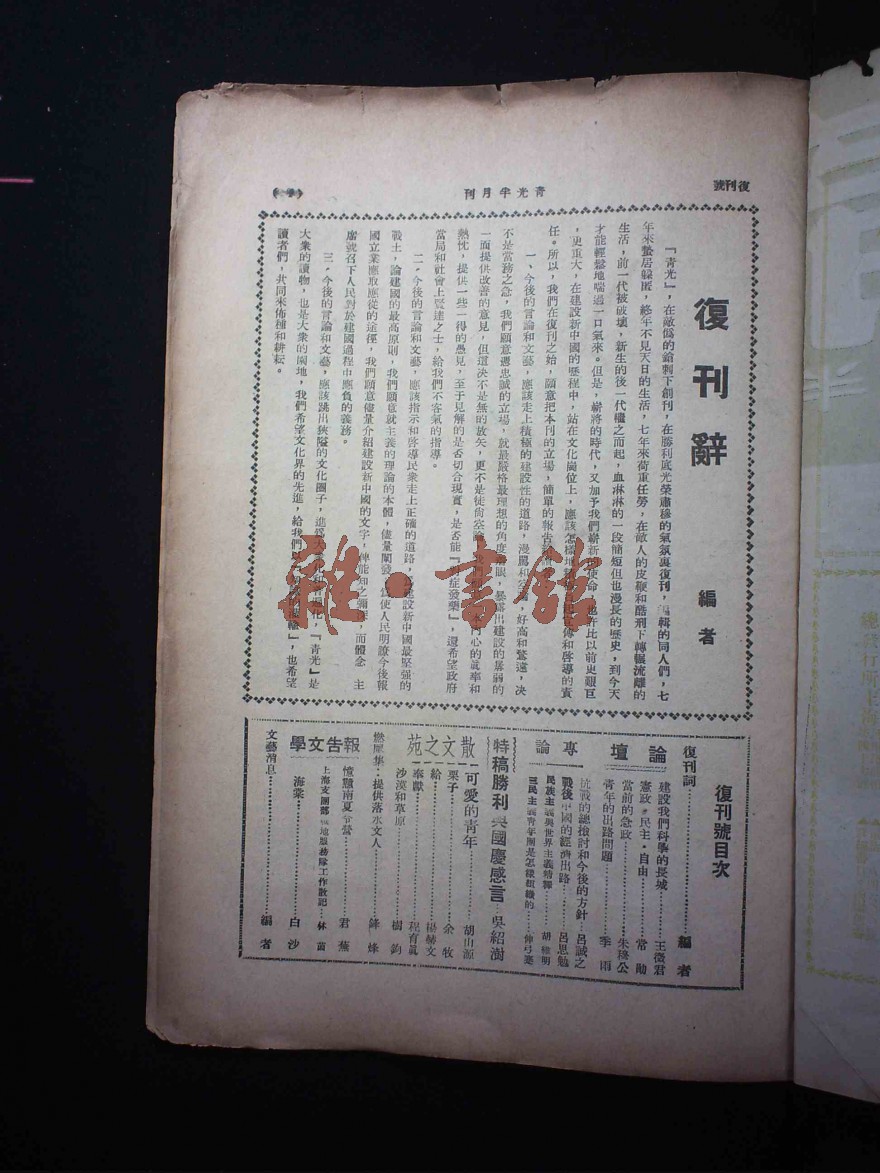 復刊號
青光半月刊
復刊辭
編者
『青光』，在敵僞的鎗刺下創刊，在勝利底光榮肅穆的氣氛裏復刊，編輯的同人們，七
年來蟄居躱匿，終年不見天日的生活，七年來荷重任勞，在敵人的皮鞭和酷刑下轉輾流離的
生活，前一代被破壞，新生的後一代櫃之而起，血淋淋的一段簡短但也漫長的歷史，到今天
才能輕鬆地喘過一口氣來。但是，嶄將的時代，又加予我們嶄新的使命，也許比以前更艱巨
，更重大，在建設新中國的歷程中，站在文化崗位上，應該怎樣地傳和啓導的責
任。所以，我們在復刊之始，願意把本刊的立場，簡單的報告
一、今後的言論和文藝，應該走上積極的建設性的道路，漫罵和好高和騖遠，决
不是當務之急，我們願意選忠誠的立場，就最嚴格最理想的角度暴露出建設的暴弱的
一面提供改善的意見，但這决不是無的放矢，更不是徒尙空論，我們內心的眞率和
熱忱，提供一些一得的愚見，至于見解的是否切合現實，是否能『對症發藥』，還希望政府
當局和社會上賢達之士，給我們不客氣的指導。
二、今後的言論和文藝，應該指示和啓導民衆走上正確的道路，建設新中國最堅強的
戰士，論建國的最高原則，我們願意就主義的理論的本體，儘量闡發，使人民明瞭今後報
國立業應取應從的途徑，我們願意儘量介紹建設新中國的文字，俾能知之彌深，而體念 主
席號召下人民對於建國過程中應負的義務。
三、今後的言論和文藝，應該跳出狹隘的文化圈子，進爲大衆化和普遍化，『青光』是
大衆的讀物，也是大衆的園地，我們希望文化界的先進，給我們以灌輸』，也希望
讀者們，共同來佈種和耕耘。
復刊號目次
復刊詞……編者
論壇
建設我們科學的長城……王微君
憲政・民主・自由……常勛
當前的急政……朱穆公
青年的出路問題……季雨
專論
抗戰的總檢討和今後的方針……呂誠之
戰後中國的經濟出路……呂思勉
民族主義與世界主義精釋……胡雄明
三民主義青年團是怎樣組織的……仲弓憲
特稿 勝利與國慶感言……吳紹澍
散文之苑
可愛的青年……胡山源
栗子……余牧
給……楊赫文
奉獻……程育眞
沙漠和草原……樹鈞
燃犀集：提供落水文人……鋒烽
報告文學
憶黯南夏令營……君蕪
上海支團部戰地服務隊工作散記……休茵
海棠……白沙
文藝消息……編者
雜・書館